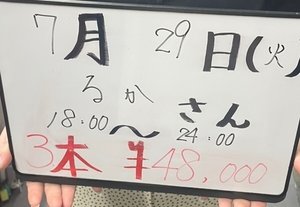 7月 29日(火)
るか さん
18:00〜24:00
3本 ¥48,000